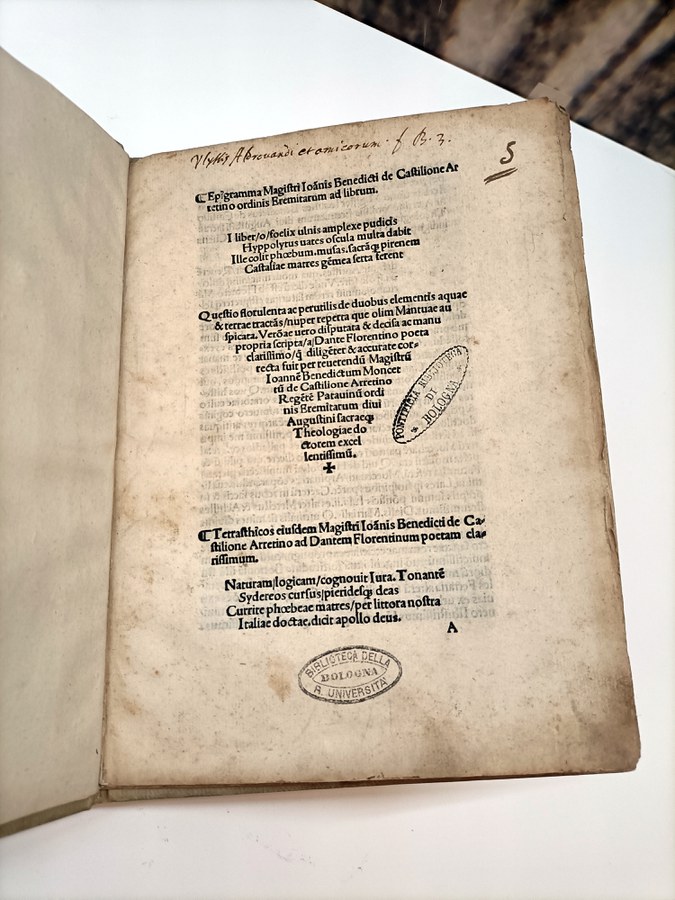 Vlyssis Aldrovandi et amicorum. f B. 3.
5
⁋ Epigramma Magistri Ioānis Benedicti de Castilione Ar
retino ordinis Eremitarum ad librum.
I liber/o/foelix ulnis amplexe pudicis
Hyppolytus uates oscula multa dabit
Ille colit phœbum.musas.sacrāq; pirenem
Castaliae matres gēmea serta ferent
Questio florulenta ac perutilis de duobus elementis aquae
& terrae tractās/nuper reperta que olim Mantuae au
spicata. Verōae uero disputata & decisa ac manu
propria scripta/a/Dante Florentino poeta
clarissimo/q̄ diligēter & accurate cor-
recta fuit per reuerendū Magistrū
Ioannē Benedictum Moncet
tū de Castilione Arretino
Regētē Patauinū ordi
nis Eremitarum diui
Augustini sacraeq;
Theologiae do
ctorem excel
lentissimū.
✠
PONTIFICIA BIBLIOTECA
DI
BOLOGNA
⁋ Tetrasthicos eiusdem Magistri Ioānis Benedicti de Ca-
stilione Arretino ad Dantem Florentinum poetam cla-
rissimum.
Naturam/logicam/cognouit Iura. Tonantē
Sydereos cursus/pieridesq; deas
Currite phœbeae matres/per littora nostra
Italiae doctae.dicit apollo deus.
A
BIBLIOTECA DELLA
BOLOGNA
R. UNIVERSITÀ